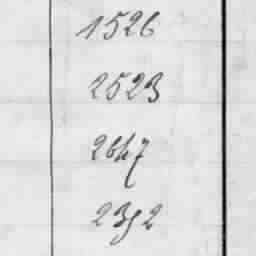 1526
2523
2647
2392